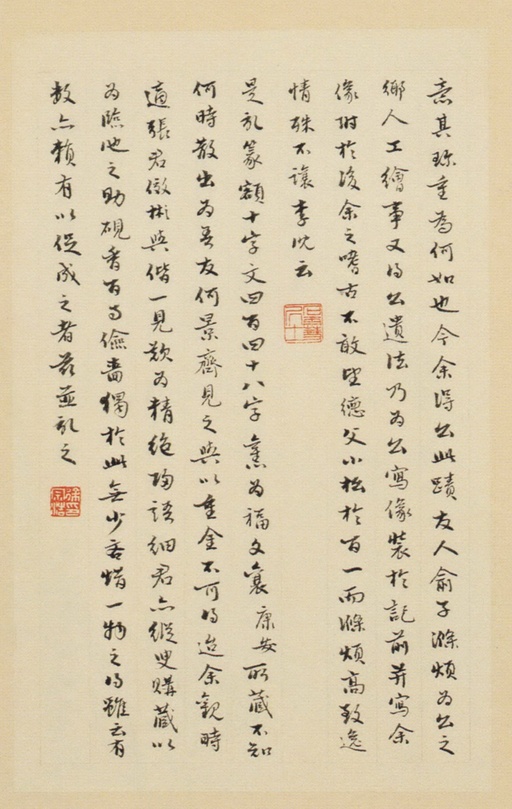 意其珎重為何如也今余得公此蹟友人俞子滌煩為公之
鄉人工繪事又得公遺法乃為公寫像裝於記前并寫余
像坿於後余之嗜古不敢望德父小松於百一而滌煩高致逸
情殊不讓李沈云
是記篆額十字文四百四十八字舊為福文襄康安所藏不知
何時散出為吾友何景齋見之與以重金不可得迨余觀時
適張君傚彬與偕一見歎為精絕歸語細君亦縱臾購藏以
為臨池之助硯香百事儉嗇獨於此無少吝惜一物之得雖云有
數亦賴有以促成之者茲並記之